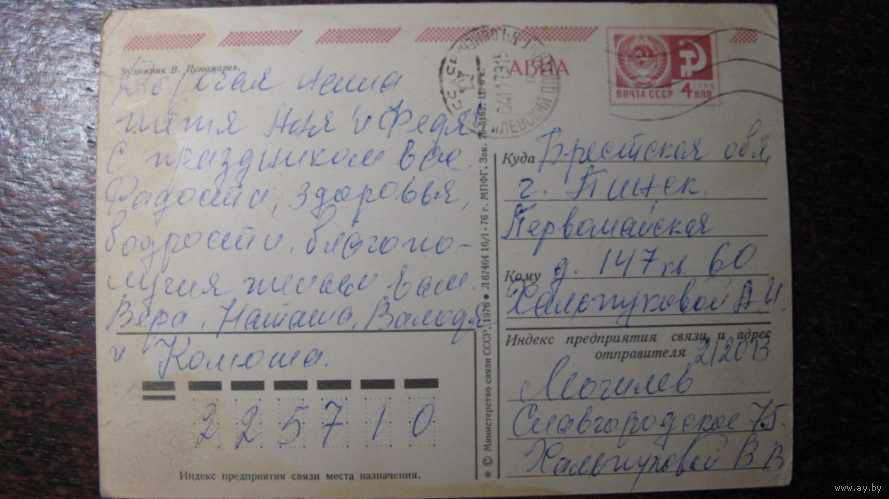 Художник В. Пономарев.
Дорогая наша
тетя Аня и Федя
С праздником вас
Радости, здоровья,
бодрости, благопо-
лучия желаем вам
Вера, Наташа, Володя
и Колюша.
225710
Индекс предприятия связи места назначения.
© Министерство связи СССР, 1976 ● Л 67404 16/I-76 г. МПФГ. Зак.
АВИА
ПОЧТА СССР
4 КОП
Куда Брестская обл,
г. Пинск.
Первомайская
д. 147 кв 60
Кому
Халипуковой А И.
Индекс предприятия связи и адрес
отправителя 212013
Могилев
Славгородское 75
Халипуковой В В
www.ay.by